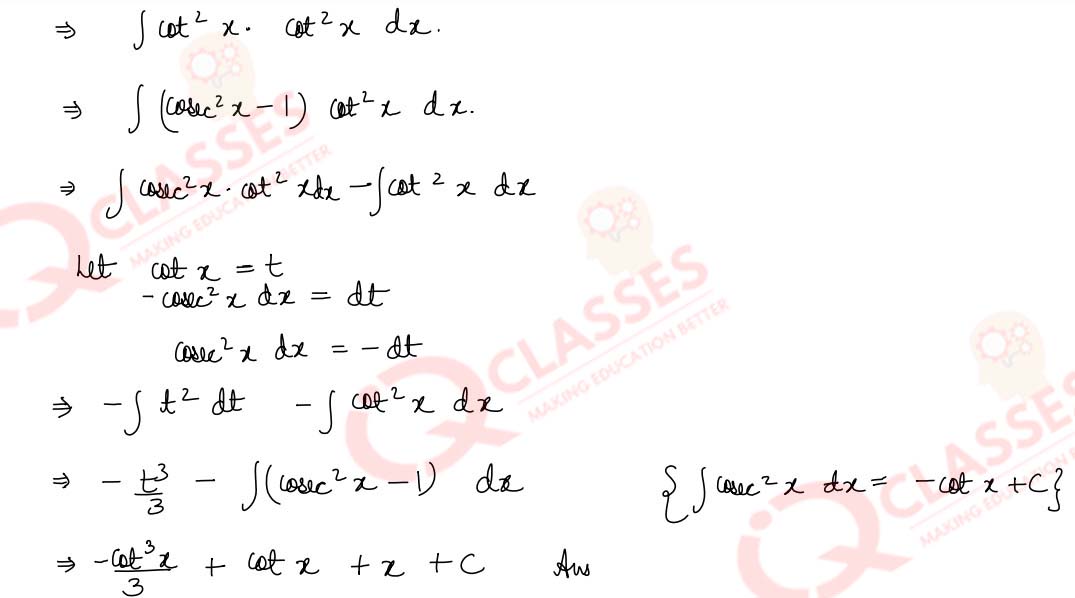 ⇒ ∫ cot² x · cot² x dx.
⇒ ∫ (cosec² x − 1) cot² x dx.
⇒ ∫ cosec² x · cot² x dx − ∫ cot² x dx
Let cot x = t
− cosec² x dx = dt
cosec² x dx = − dt
⇒ − ∫ t² dt − ∫ cot² x dx
⇒ − t³/3 − ∫ (cosec² x − 1) dx {∫ cosec² x dx = − cot x + C}
⇒ −cot³ x/3 + cot x + x + C Ans
CLASSES
MAKING EDUCATION BETTER
CLASSES
MAKING EDUCATION BETTER
CLASSES
MAKING EDUCATION